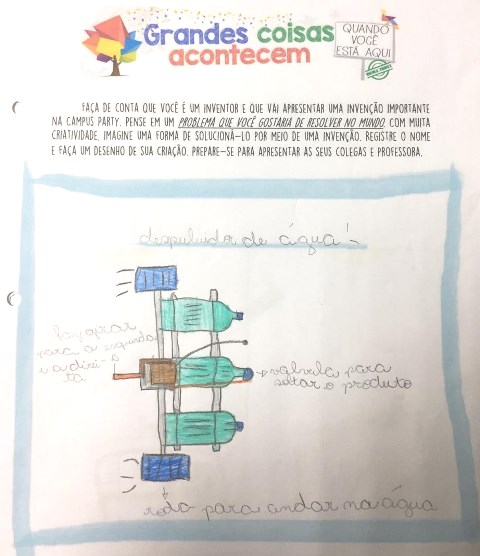 Grandes coisas
acontecem
QUANDO
VOCÊ
ESTÁ AQUI
FAÇA DE CONTA QUE VOCÊ É UM INVENTOR E QUE VAI APRESENTAR UMA INVENÇÃO IMPORTANTE
NA CAMPUS PARTY. PENSE EM UM PROBLEMA QUE VOCÊ GOSTARIA DE RESOLVER NO MUNDO. COM MUITA
CRIATIVIDADE, IMAGINE UMA FORMA DE SOLUCIONÁ-LO POR MEIO DE UMA INVENÇÃO. REGISTRE O NOME
E FAÇA UM DESENHO DE SUA CRIAÇÃO. PREPARE-SE PARA APRESENTAR AS SEUS COLEGAS E PROFESSORA.
despuluidor de água!
para a esquerda
e a direi-
ta
valvula para
soltar o produto
roda para andar na água